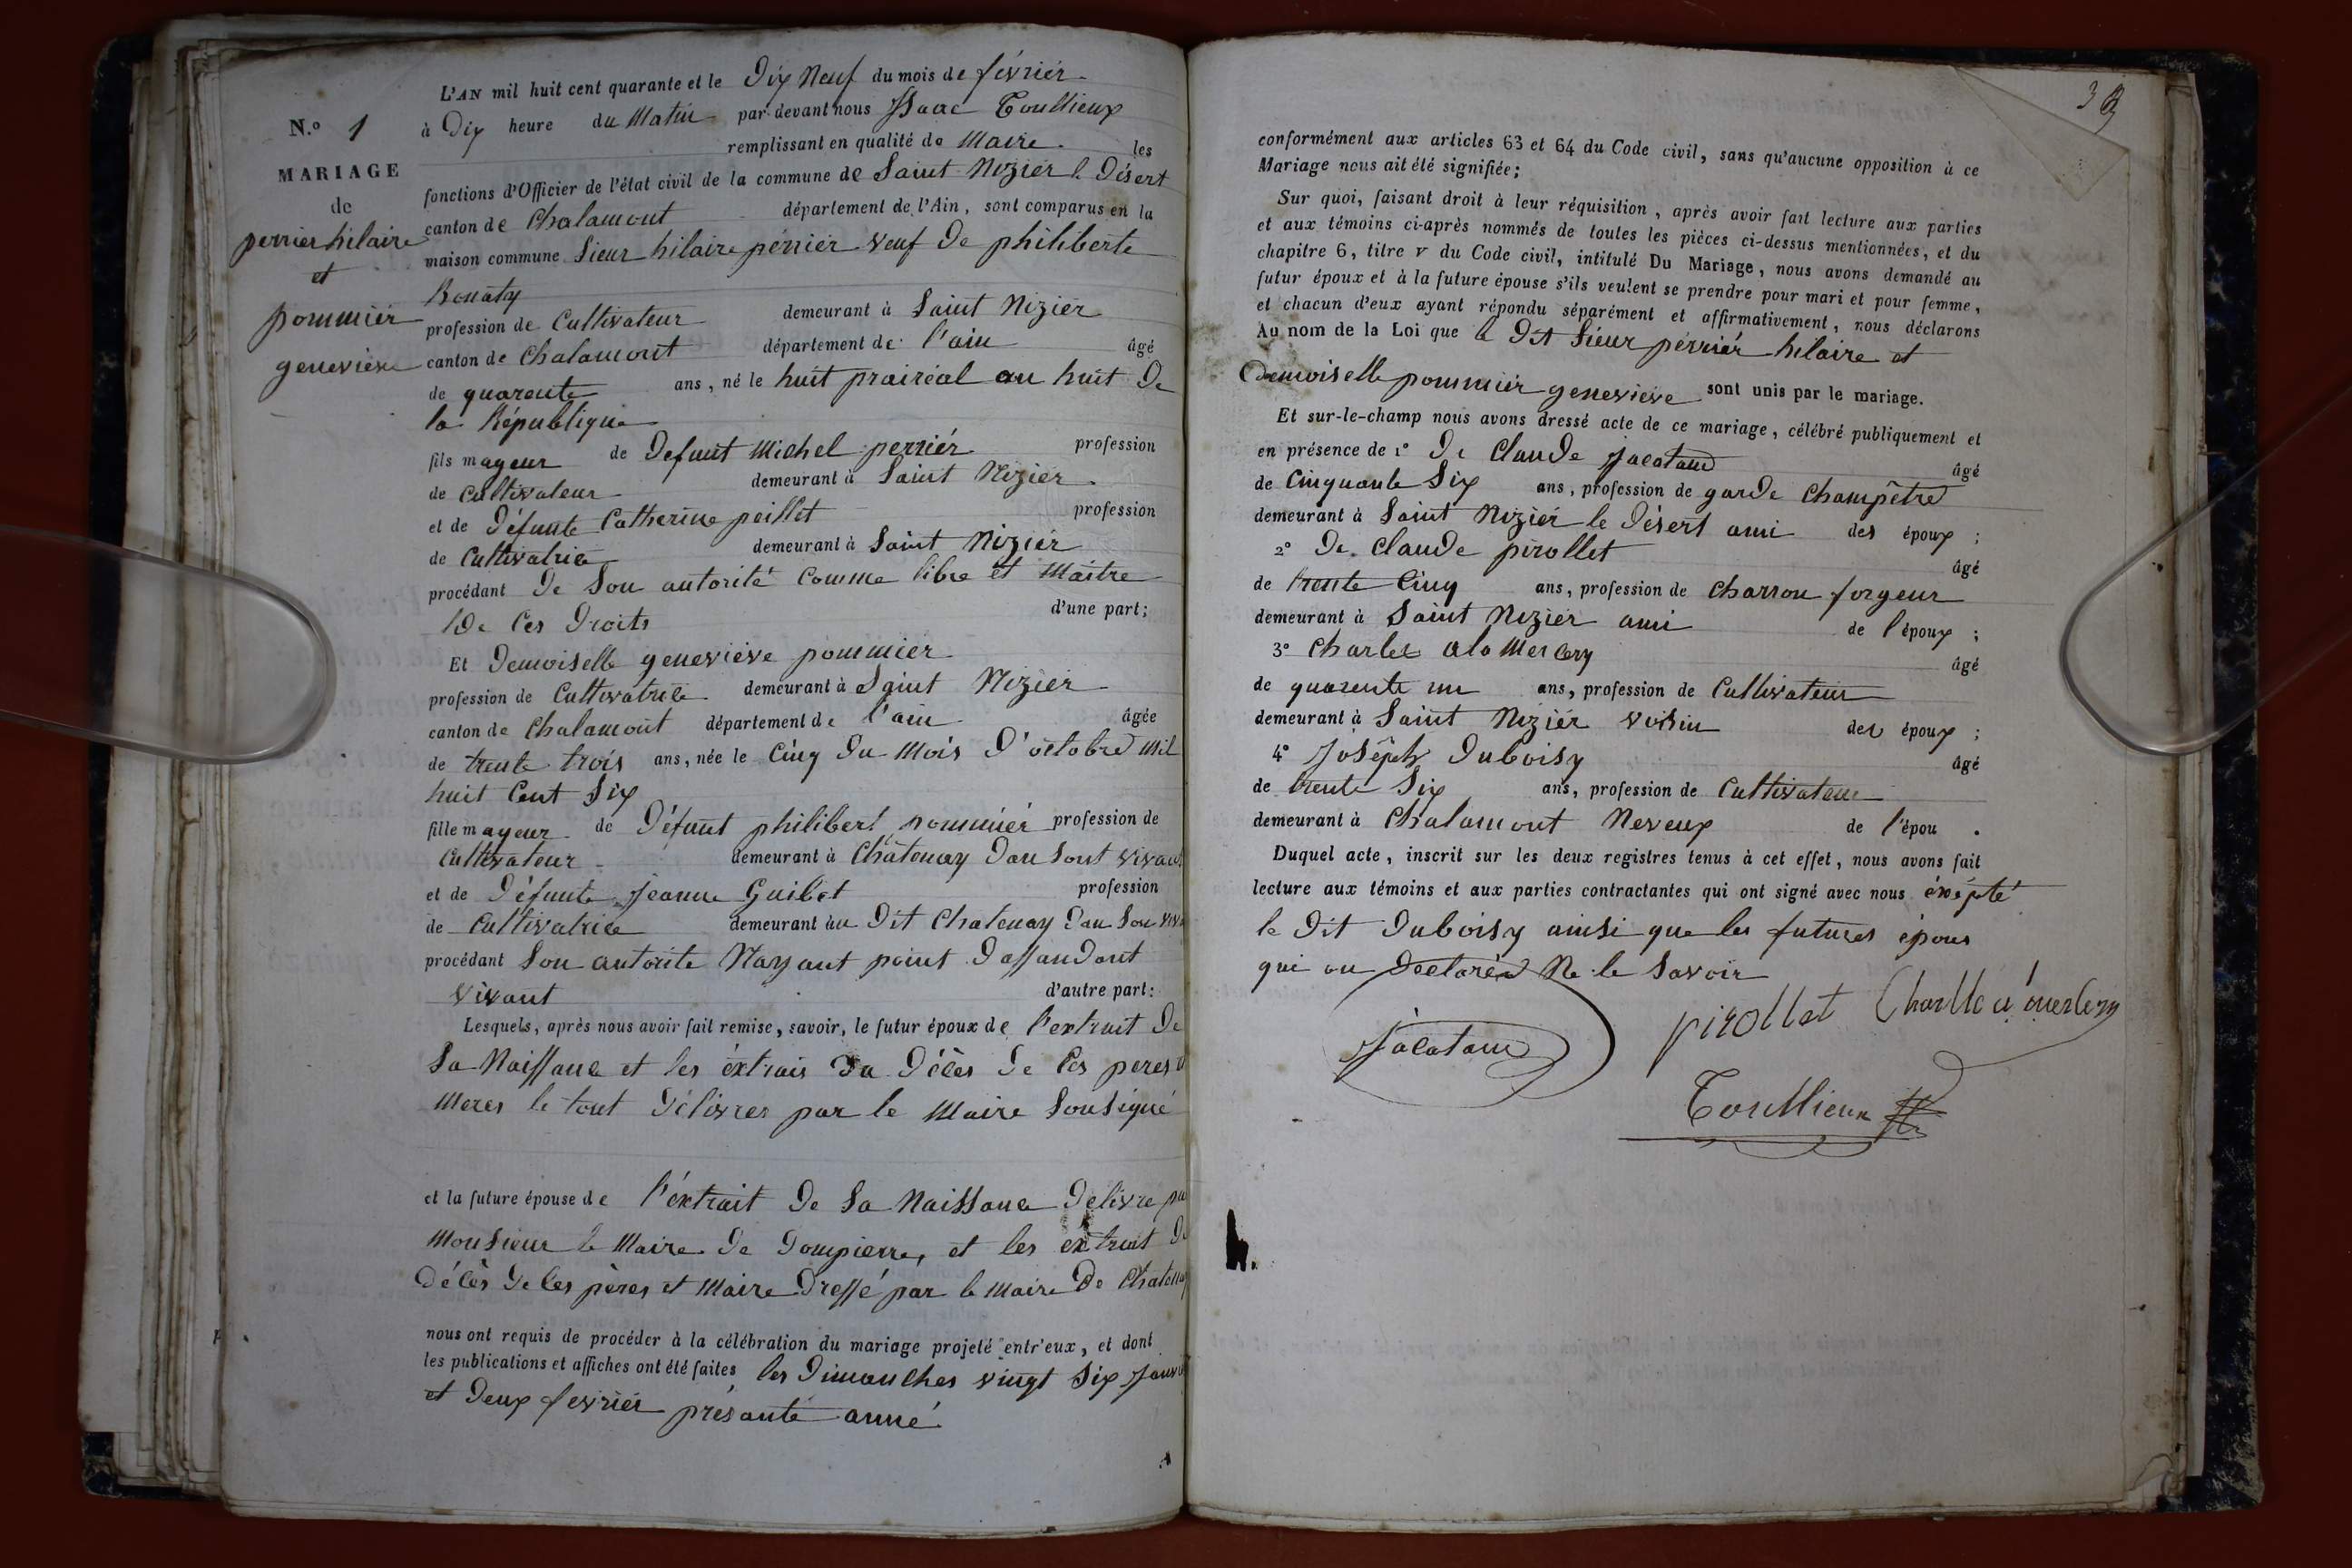 N.o 1
MARIAGE
de
perrier hilaire
et
pommiér
genevieve
L'AN mil huit cent quarante et le Dix Neuf du mois de févriér
à Dix heure du Matin par-devant nous Isaac Toullieux
remplissant en qualité de Maire les
fonctions d'Officier de l'état civil de la commune de Saint Nizier le Désert
canton de Chalamont département de l'Ain, sont comparus en la
maison commune Sieur hilaire périér veuf de philiberte
Bonaty
profession de Cultivateur demeurant à Saint Nizier
canton de Chalamont département de l'ain âgé
de quarente ans, né le huit prairéal an huit De
la République
fils mageur de Defunt Michel perriér profession
de Cultivateur demeurant à Saint Nizier
et de Défunte Catherine peillet profession
de Cultivatrice demeurant à Saint Nizier
procédant De Son autorité Comme libre et Maitre
De Ces Droits d'une part;
Et Demoiselle geneviève pommier
profession de Cultivatrice demeurant à Saint Nizier
canton de Chalamont département de l'ain âgée
de trente trois ans, née le Cinq du Mois D'octobre Mil
huit Cent Six
fille mageur de Défunt philibert pommiér profession de
Cultivateur demeurant à Châtenay Dan Sont vivant
et de Défunte Jeanne Guibet profession
de Cultivatrice demeurant au Dit Chatenay Dan Son
procédant Son autorite Nayant point Dassandant
vivant d'autre part:
Lesquels, après nous avoir fait remise, savoir, le futur époux de l'extrait De
Sa Naissance et les éxtrais Du Décès De Ces peres
Meres le tout Délivres par le Maire Sousigné
et la future épouse de l'éxtrait De Sa Naissance Delivre
Monsieur le Maire De Dompierre, et les extrait
Décès De Ces pères et Maire Dressé par le Maire De Chatenay
nous ont requis de procéder à la célébration du mariage projeté entr'eux, et dont
les publications et affiches ont été faites les Dimanches vingt Six
et Deux fevriér présante anné
3
conformément aux articles 63 et 64 du Code civil, sans qu'aucune opposition à ce
Mariage nous ait été signifiée;
Sur quoi, faisant droit à leur réquisition, après avoir fait lecture aux parties
et aux témoins ci-après nommés de toutes les pièces ci-dessus mentionnées, et du
chapitre 6, titre v du Code civil, intitulé Du Mariage, nous avons demandé au
futur époux et à la future épouse s'ils veulent se prendre pour mari et pour femme,
et chacun d'eux ayant répondu séparément et affirmativement, nous déclarons
Au nom de la Loi que le Dit Sieur périér hilaire et
Demoiselle pommiér genevieve sont unis par le mariage.
Et sur-le-champ nous avons dressé acte de ce mariage, célébré publiquement et
en présence de 1° De Claude Jacotand âgé
de Cinquante Six ans, profession de garde Champêtre
demeurant à Saint Nizier le Désert ami des époux ;
2° De Claude pirollet âgé
de trente Cinq ans, profession de Charron forgeur
demeurant à Saint Nizier ami de l'époux ;
3° Charles alamercery âgé
de quarente un ans, profession de Cultivateur
demeurant à Saint Nizier voisin des époux ;
4° Joseph Duboisy âgé
de trente Six ans, profession de Cultivateur
demeurant à Chalamont Neveux de l'épou .
Duquel acte, inscrit sur les deux registres tenus à cet effet, nous avons fait
lecture aux témoins et aux parties contractantes qui ont signé avec nous éxépté
le Dit Duboisy ainsi que les futures épous
qui on Declarés Ne le Savoir
Jacotand
pirollet
Toullieux